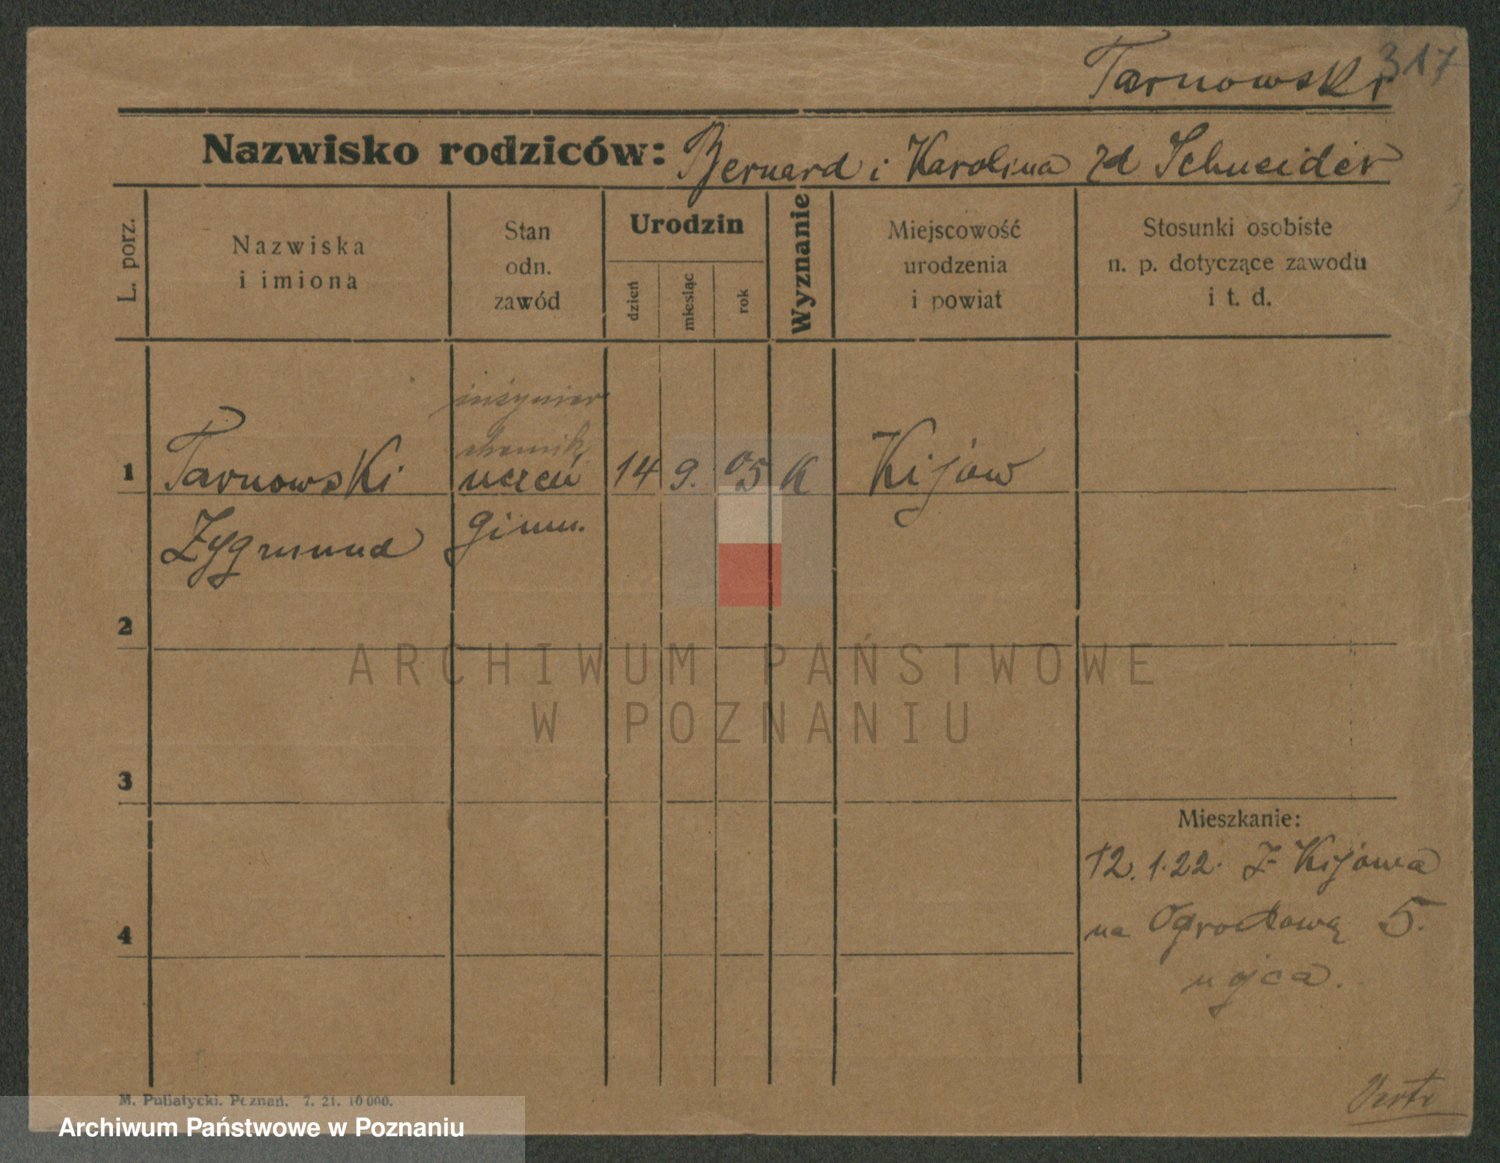 317
Tarnowski
Nazwisko rodziców: Bernard i Karolina zd Schneider
L. porz.
Nazwiska
i imiona
Stan
odn.
zawód
Urodzin
dzień
miesiąc
rok
Wyznanie
Miejscowość
urodzenia
i powiat
Stosunki osobiste
n. p. dotyczące zawodu
i t. d.
inżynier
chemik
1 Tarnowski uczeń 14 9. 05 K Kijów
Zygmund gimn.
2
ARCHIWUM PAŃSTWOWE
W POZNANIU
3
Mieszkanie:
12.1.22. Z Kijowa
4
na Ogrodową 5.
u ojca.
M. Putiatycki. Poznań. 7. 21. 10 000.
Archiwum Państwowe w Poznaniu